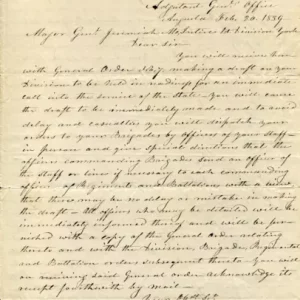 Adjutant Genls Office
Augusta Feb. 20. 1839.
Major Genl Jeremiah McIntire 1st Division York
Dear Sir
You will receive here
with General Order No 7. making a draft on your
Division to be held in readiness for an immediate
call into the service of the state. You will cause
the draft to be immediately made and to avoid
delay and casualties you will dispatch your
orders to your Brigades by officers of your Staff
in person and give special directions that the
officers commanding Brigades send an officer of
the Staff or line if necessary to each commanding
officer of Regiments and Battalions with a view
that there may be no delay or mistake in making
the draft — All officers who may be detailed will be
immediately informed thereof and will be fur
nished with a copy of the General order relating
thereto and with the Division, Brigade, Regimental
and Battalion orders subsequent thereto. You will
on receiving said General order acknowledge its
receipt forthwith by mail —